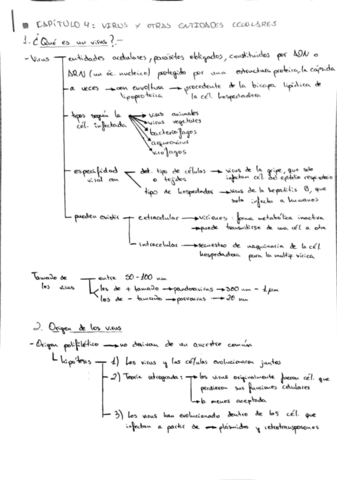 CAPÍTULO 4: VIRUS Y OTRAS ENTIDADES CELULARES
1. ¿Qué es un virus?.-
- Virus entidades acelulares, parásitos obligados, constituidos por ADN o
ARN (un ác. nucleico) protegido por una estructura proteica, la cápsida
a veces → con envoltura → procedente de la bicapa lipídica de
lipoproteica la cél. hospedadora
tipos según la → virus animales
cél. infectada → virus vegetales
bacteriófagos
virófagos
especificidad det. tipo de células → virus de la gripe, que solo
viral con o tejidos infectan cél. del epitelio respiratorio
tipo de hospedador → virus de la hepatitis B, que
solo infecta a humanos
pueden existir extracelular → viriones: forma metabólica inactiva
→ puede transmitirse de una cél a otra
intracelular → secuestro de maquinaria de la cél.
hospedadora para la multip. vírica
Tamaño de entre 50-100 nm
los virus los de + tamaño → pandoravirus → 500 nm - 1 µm
los de - tamaño → → 20 nm
2. Origen de los virus
- Origen polifilético → no derivan de un ancestro común
Hipótesis 1) Los virus y las células evolucionaron juntos
2) Teoría retrógrada: → los virus originalmente fueron cél. que
perdieron sus funciones celulares
→ la menos aceptada
3) Los virus han evolucionado dentro de las cél. que
infectan a partir de → plásmidos y retrotransposones